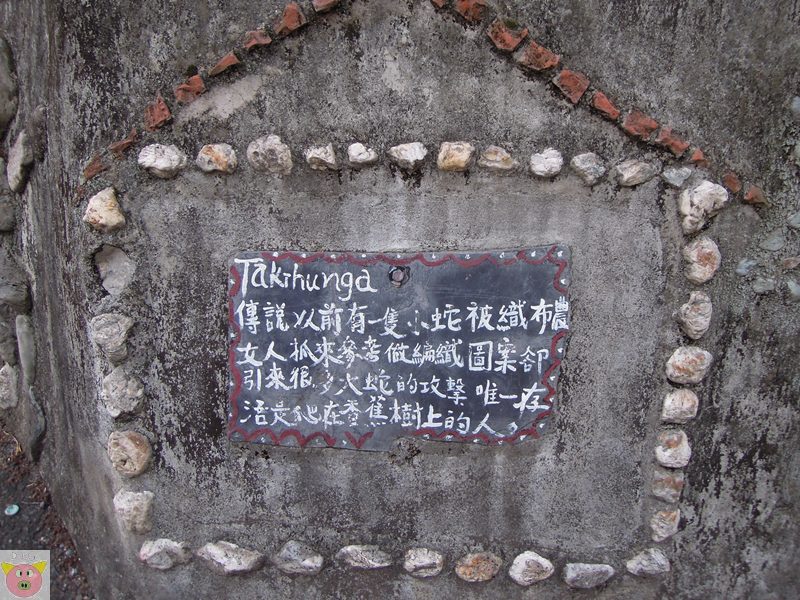 Takihunga
傳說以前有一隻小蛇被織布農
女人抓來參考做編織圖案卻
引來很多大蛇的攻擊唯一存
活是他在香蕉樹上的人。